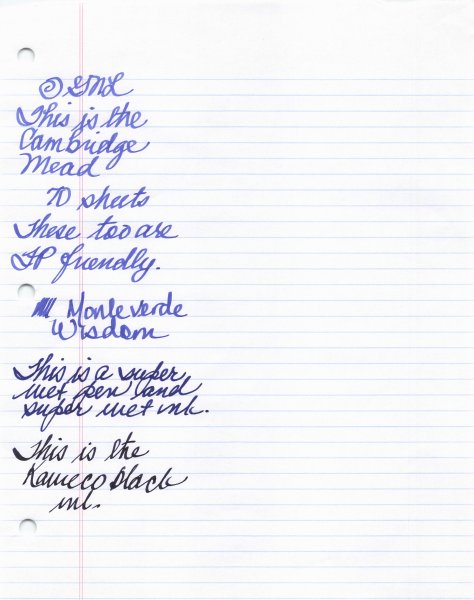 © GNL
This is the
Cambridge
Mead
70 sheets
These too are
FP friendly.
Monteverde
Wisdom
This is a super
wet pen and
super wet ink.
This is the
Kaweco Black
ink.